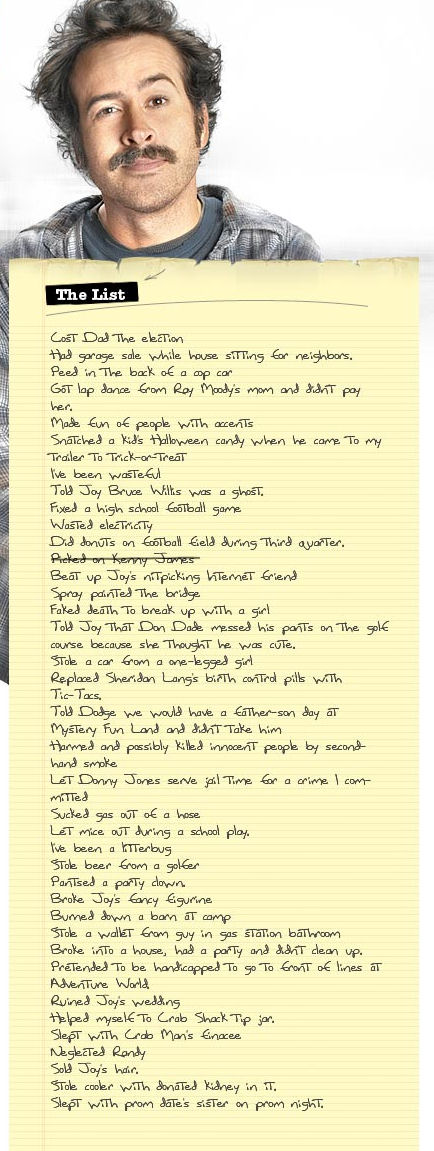 The List
Cost Dad the election
Had garage sale while house sitting for neighbors.
Peed in the back of a cop car
Got lap dance from Ray Moody's mom and didn't pay
her.
Made fun of people with accents
Snatched a kid's Halloween candy when he came to my
trailer to trick-or-treat
I've been wasteful
Told Joy Bruce Willis was a ghost.
Fixed a high school football game
Wasted electricity
Did donuts on football field during third quarter.
Picked on Kenny James
Beat up Joy's nitpicking Internet friend
Spray painted the bridge
Faked death to break up with a girl
Told Joy that Don Dade messed his pants on the golf
course because she thought he was cute.
Stole a car from a one-legged girl
Replaced Sheridan Lang's birth control pills with
Tic-Tacs.
Told Dodge we would have a father-son day at
Mystery Fun Land and didn't take him
Harmed and possibly killed innocent people by second-
hand smoke
Let Donny Jones serve jail time for a crime I com-
mitted
Sucked gas out of a hose
Let mice out during a school play.
I've been a litterbug
Stole beer from a golfer
Pantsed a party clown.
Broke Joy's fancy figurine
Burned down a barn at camp
Stole a wallet from guy in gas station bathroom
Broke into a house, had a party and didn't clean up.
Pretended to be handicapped to go to front of lines at
Adventure World
Ruined Joy's wedding
Helped myself to Crab Shack tip jar.
Slept with Crab Man's finacee
Neglected Randy
Sold Joy's hair.
Stole cooler with donated kidney in it.
Slept with prom date's sister on prom night.